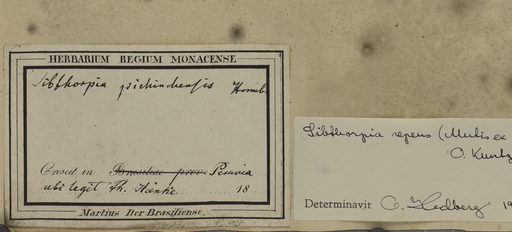 HERBARIUM REGIUM MONACENSE
Sibthorpia pichinchensis Humb.
Crescit in Brasiliae prov. Peruvia
ubi legit Th. Hänke 18
Martius Iter Brasiliense.
Sibthorpia repens (Mutis ex
O. Kuntz
Determinavit O. Hedberg 19